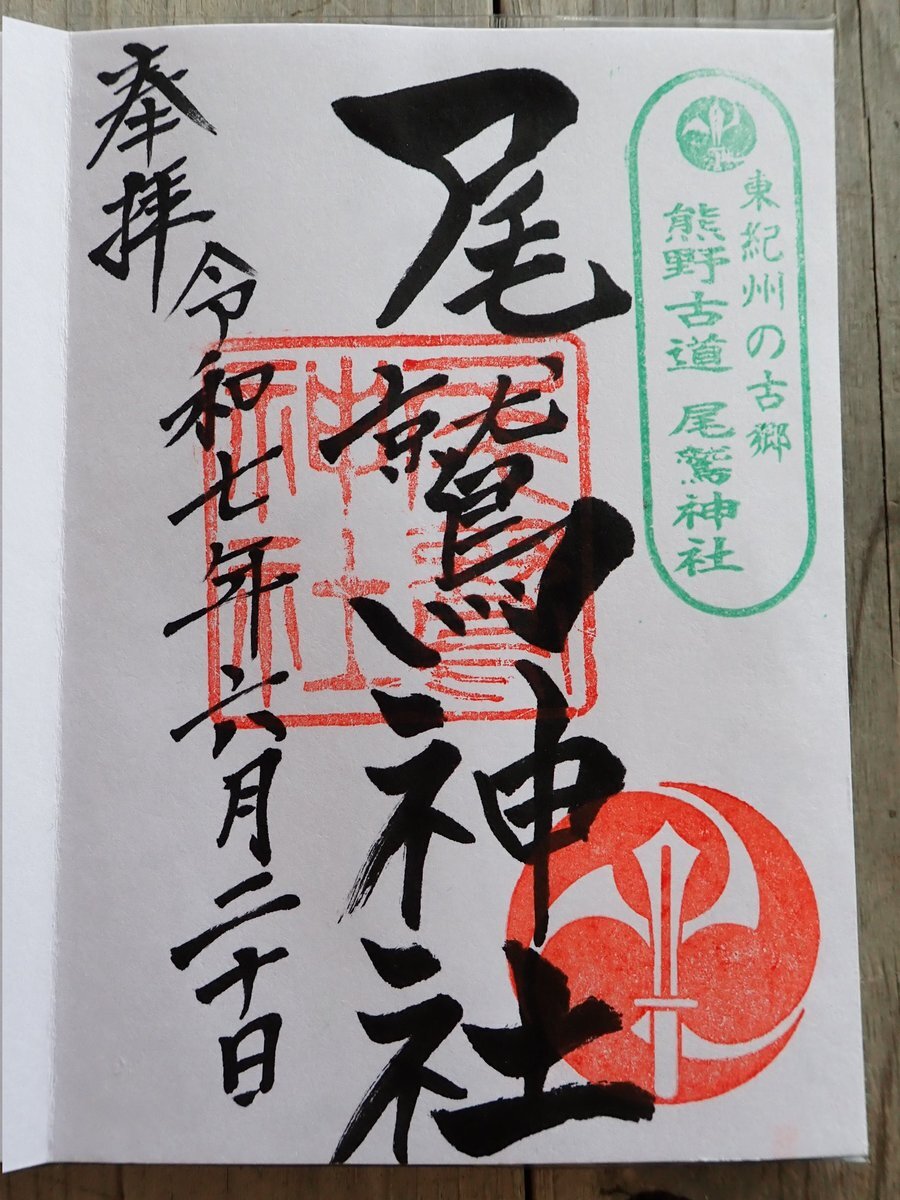 東紀州の古郷
熊野古道 尾鷲神社
尾鷲神社
奉拝
令和七年六月二十日
尾鷲神社